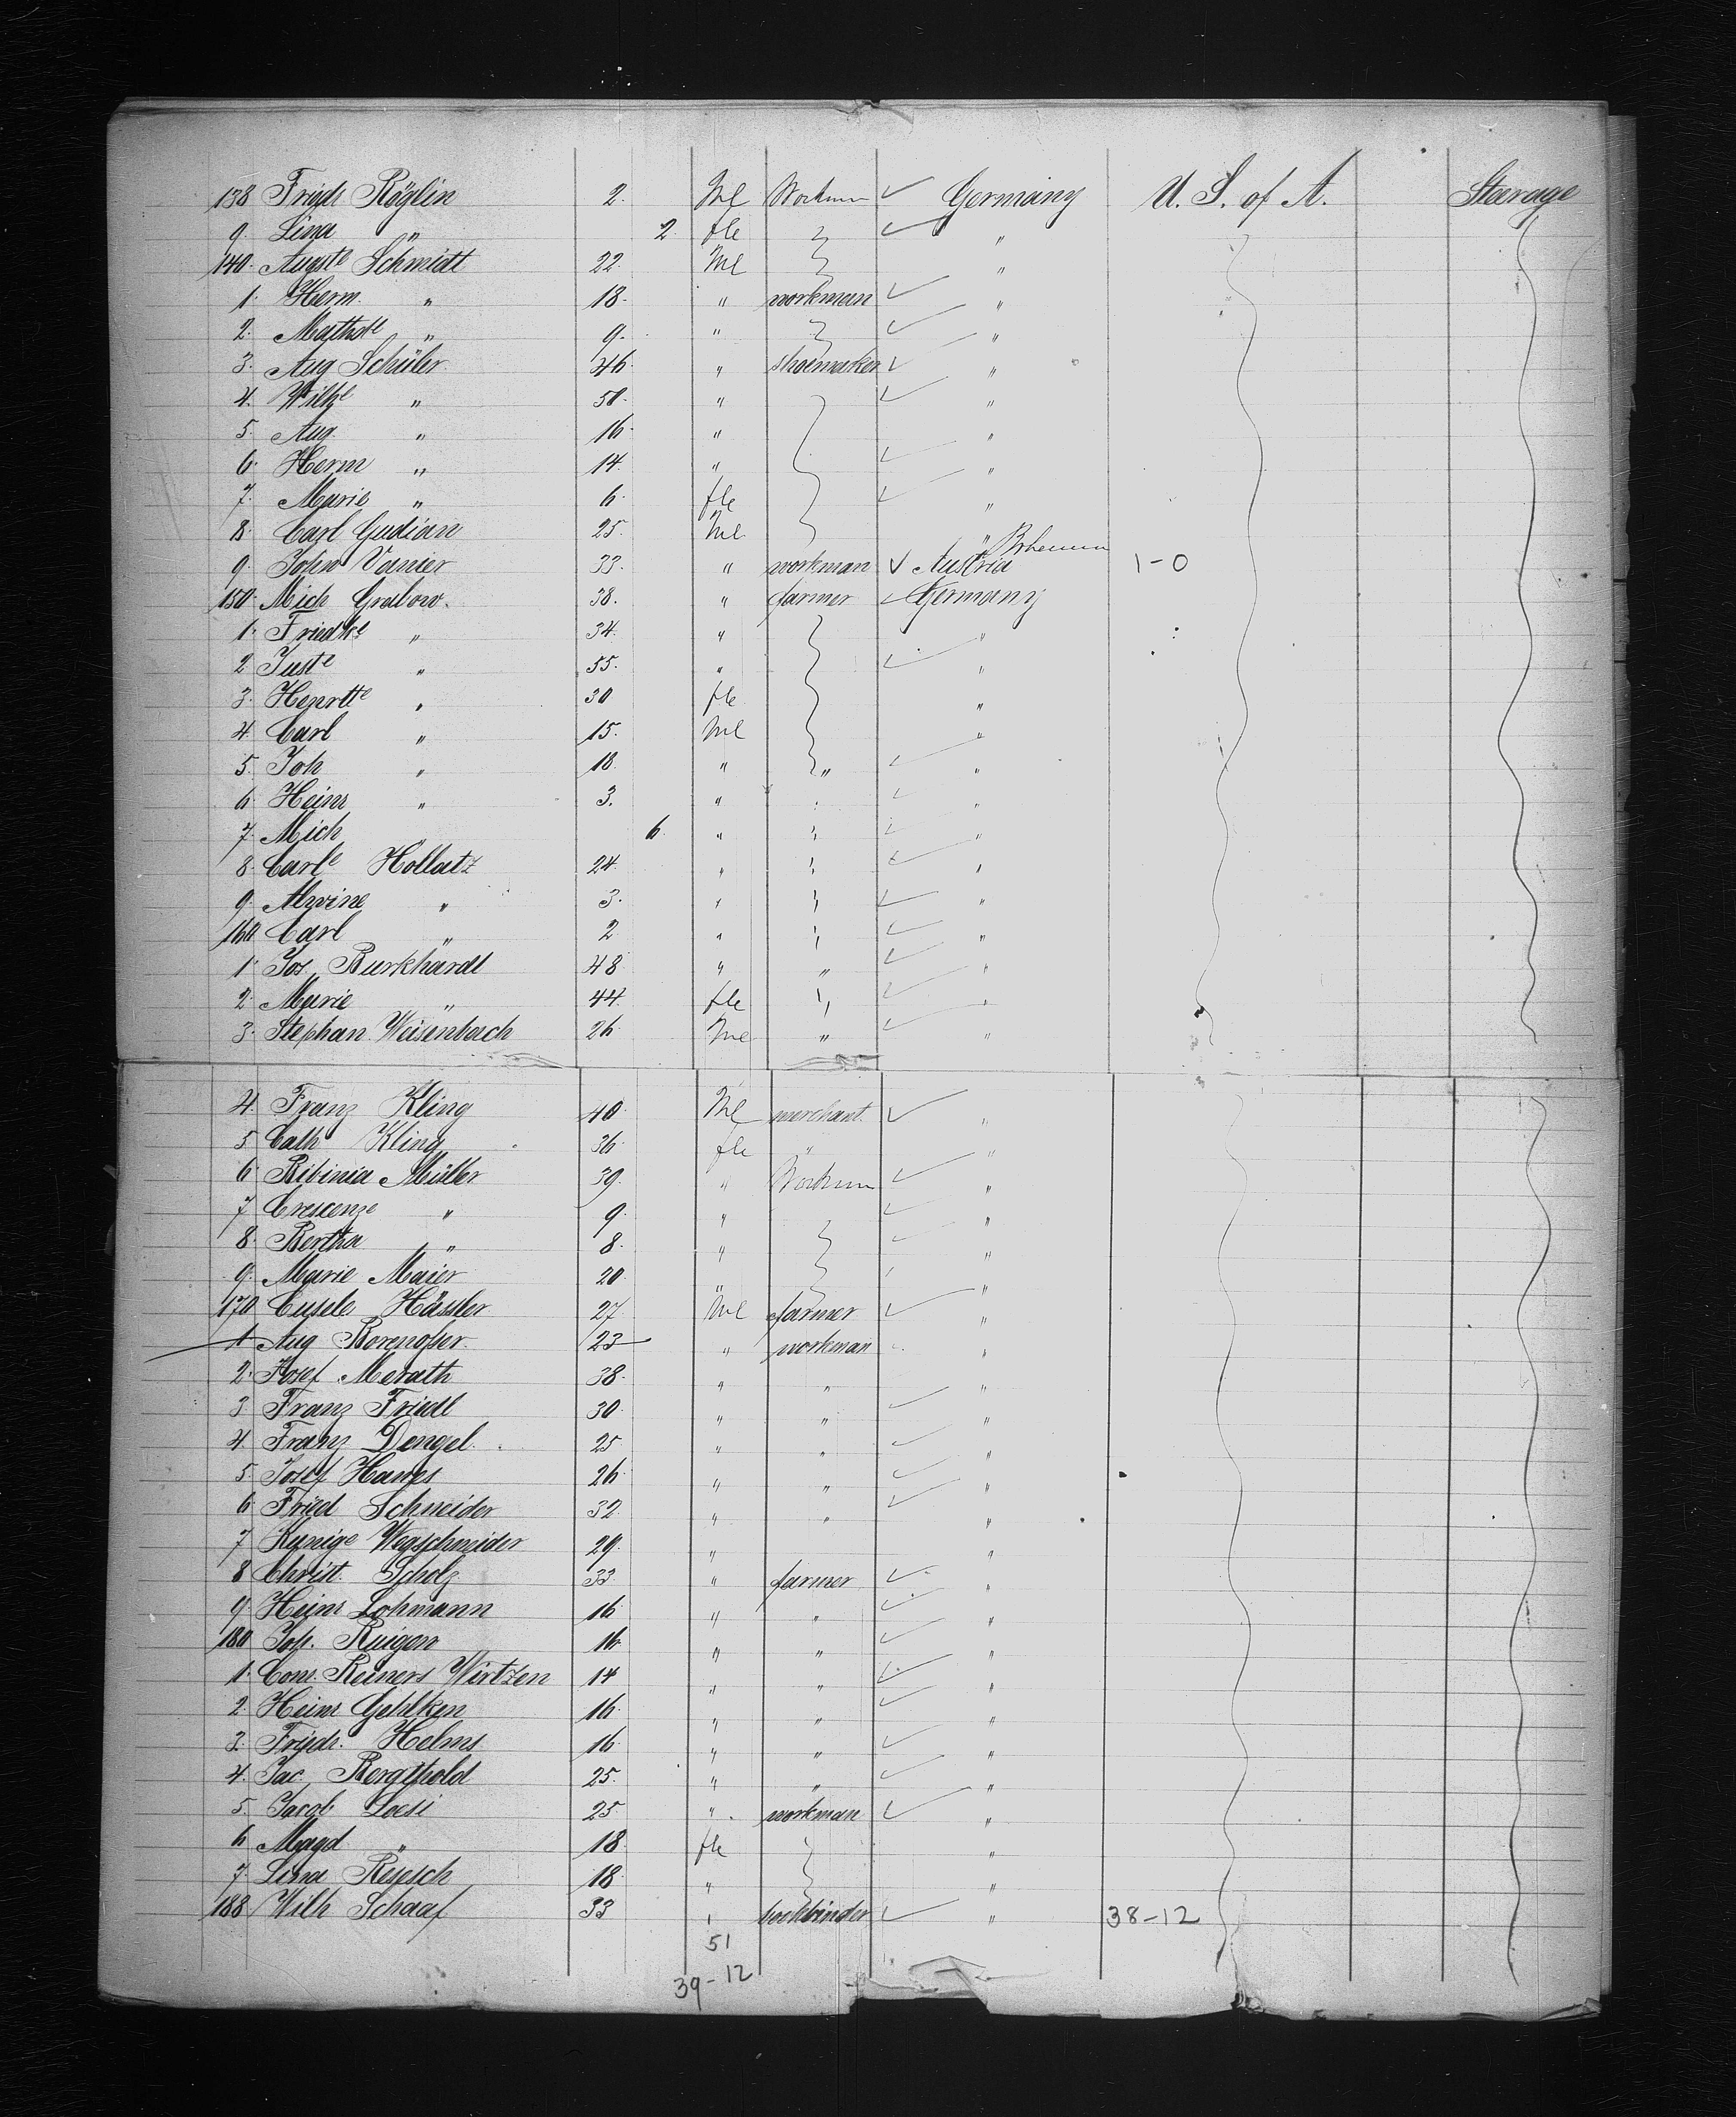 138 Friedr Röglin 2. Ml Workmn ✓ Germany U. S. of A. Steerage
9. Lina " 2 fle ✓ "
140. Auguste Schmidt 22. Ml "
1. Herm. " 18. " workman ✓ "
2. Mathde " 9. " ✓ "
3. Aug Schüler 46. " shoemaker ✓ "
4. Wilhe " 58. " ✓ "
5. Aug. " 16. " "
6. Herm " 14. " ✓ "
7. Marie " 6. fle ✓ "
8. Carl Gudian 25. Ml "
9. John Vanier 33. " workman ✓ Austria Bohemia 1-0
150. Mich Grabow. 38. " farmer ✓ Germany
1. Friedke " 34. " "
2. Juste " 55. " ✓ "
3. Henrtte " 30 fle "
4. Carl " 15. Ml "
5. Joh " 18. " " ✓ "
6. Heinr " 3. " " ✓ "
7. Mich 6. " " ✓ "
8. Carle Hollatz 24. " " ✓ "
9. Alwine " 3. " " ✓ "
160 Carl " 2 " " ✓ "
1. Jos. Burkhardt 48 " " ✓ "
2. Marie " 44. fle " ✓ "
3. Stephan Weisenbach 26 Ml " ✓ "
4. Franz Kling 40 Ml merchant. ✓ "
5 Cath Kling 36. fle " "
6. Müller 39. " Workmn ✓ "
7 Crescenze " 9. " ✓ "
8. Bertha " 8. " ✓ "
9. Marie Maier 20. " " ✓ "
170 Hässler 27 Ml farmer ✓ "
1 Aug 23 " workman "
2. Josef Merath 38. " " "
3 Franz Friedl 30. " " ✓ "
4 Franz Dengel. 25 " " ✓ "
5. Josef Hawes 26. " " ✓ "
6 Fried Schneider 32. " " ✓ "
7 Kunige Wegschneider 29. " "
8 Christ. Scholz 33 " farmer ✓ "
9. Heinr Lohmann 16 " " ✓ "
180 Joh. Ruigen 16 " " ✓ "
1. Conr. Reiners Wirtzen 14 " " ✓ "
2. Heinr Gehlken 16. " " ✓ "
3. Friedr. Helms 16. " " ✓ "
4. Jac. Bergthold 25. " " ✓ "
5. Jacob Loesi 25. " workman ✓ "
6 Magd " 18. fle "
7. Lina 18. " "
188 Wilh Schaaf 33 " bookbinder ✓ " 38-12
51
39-12